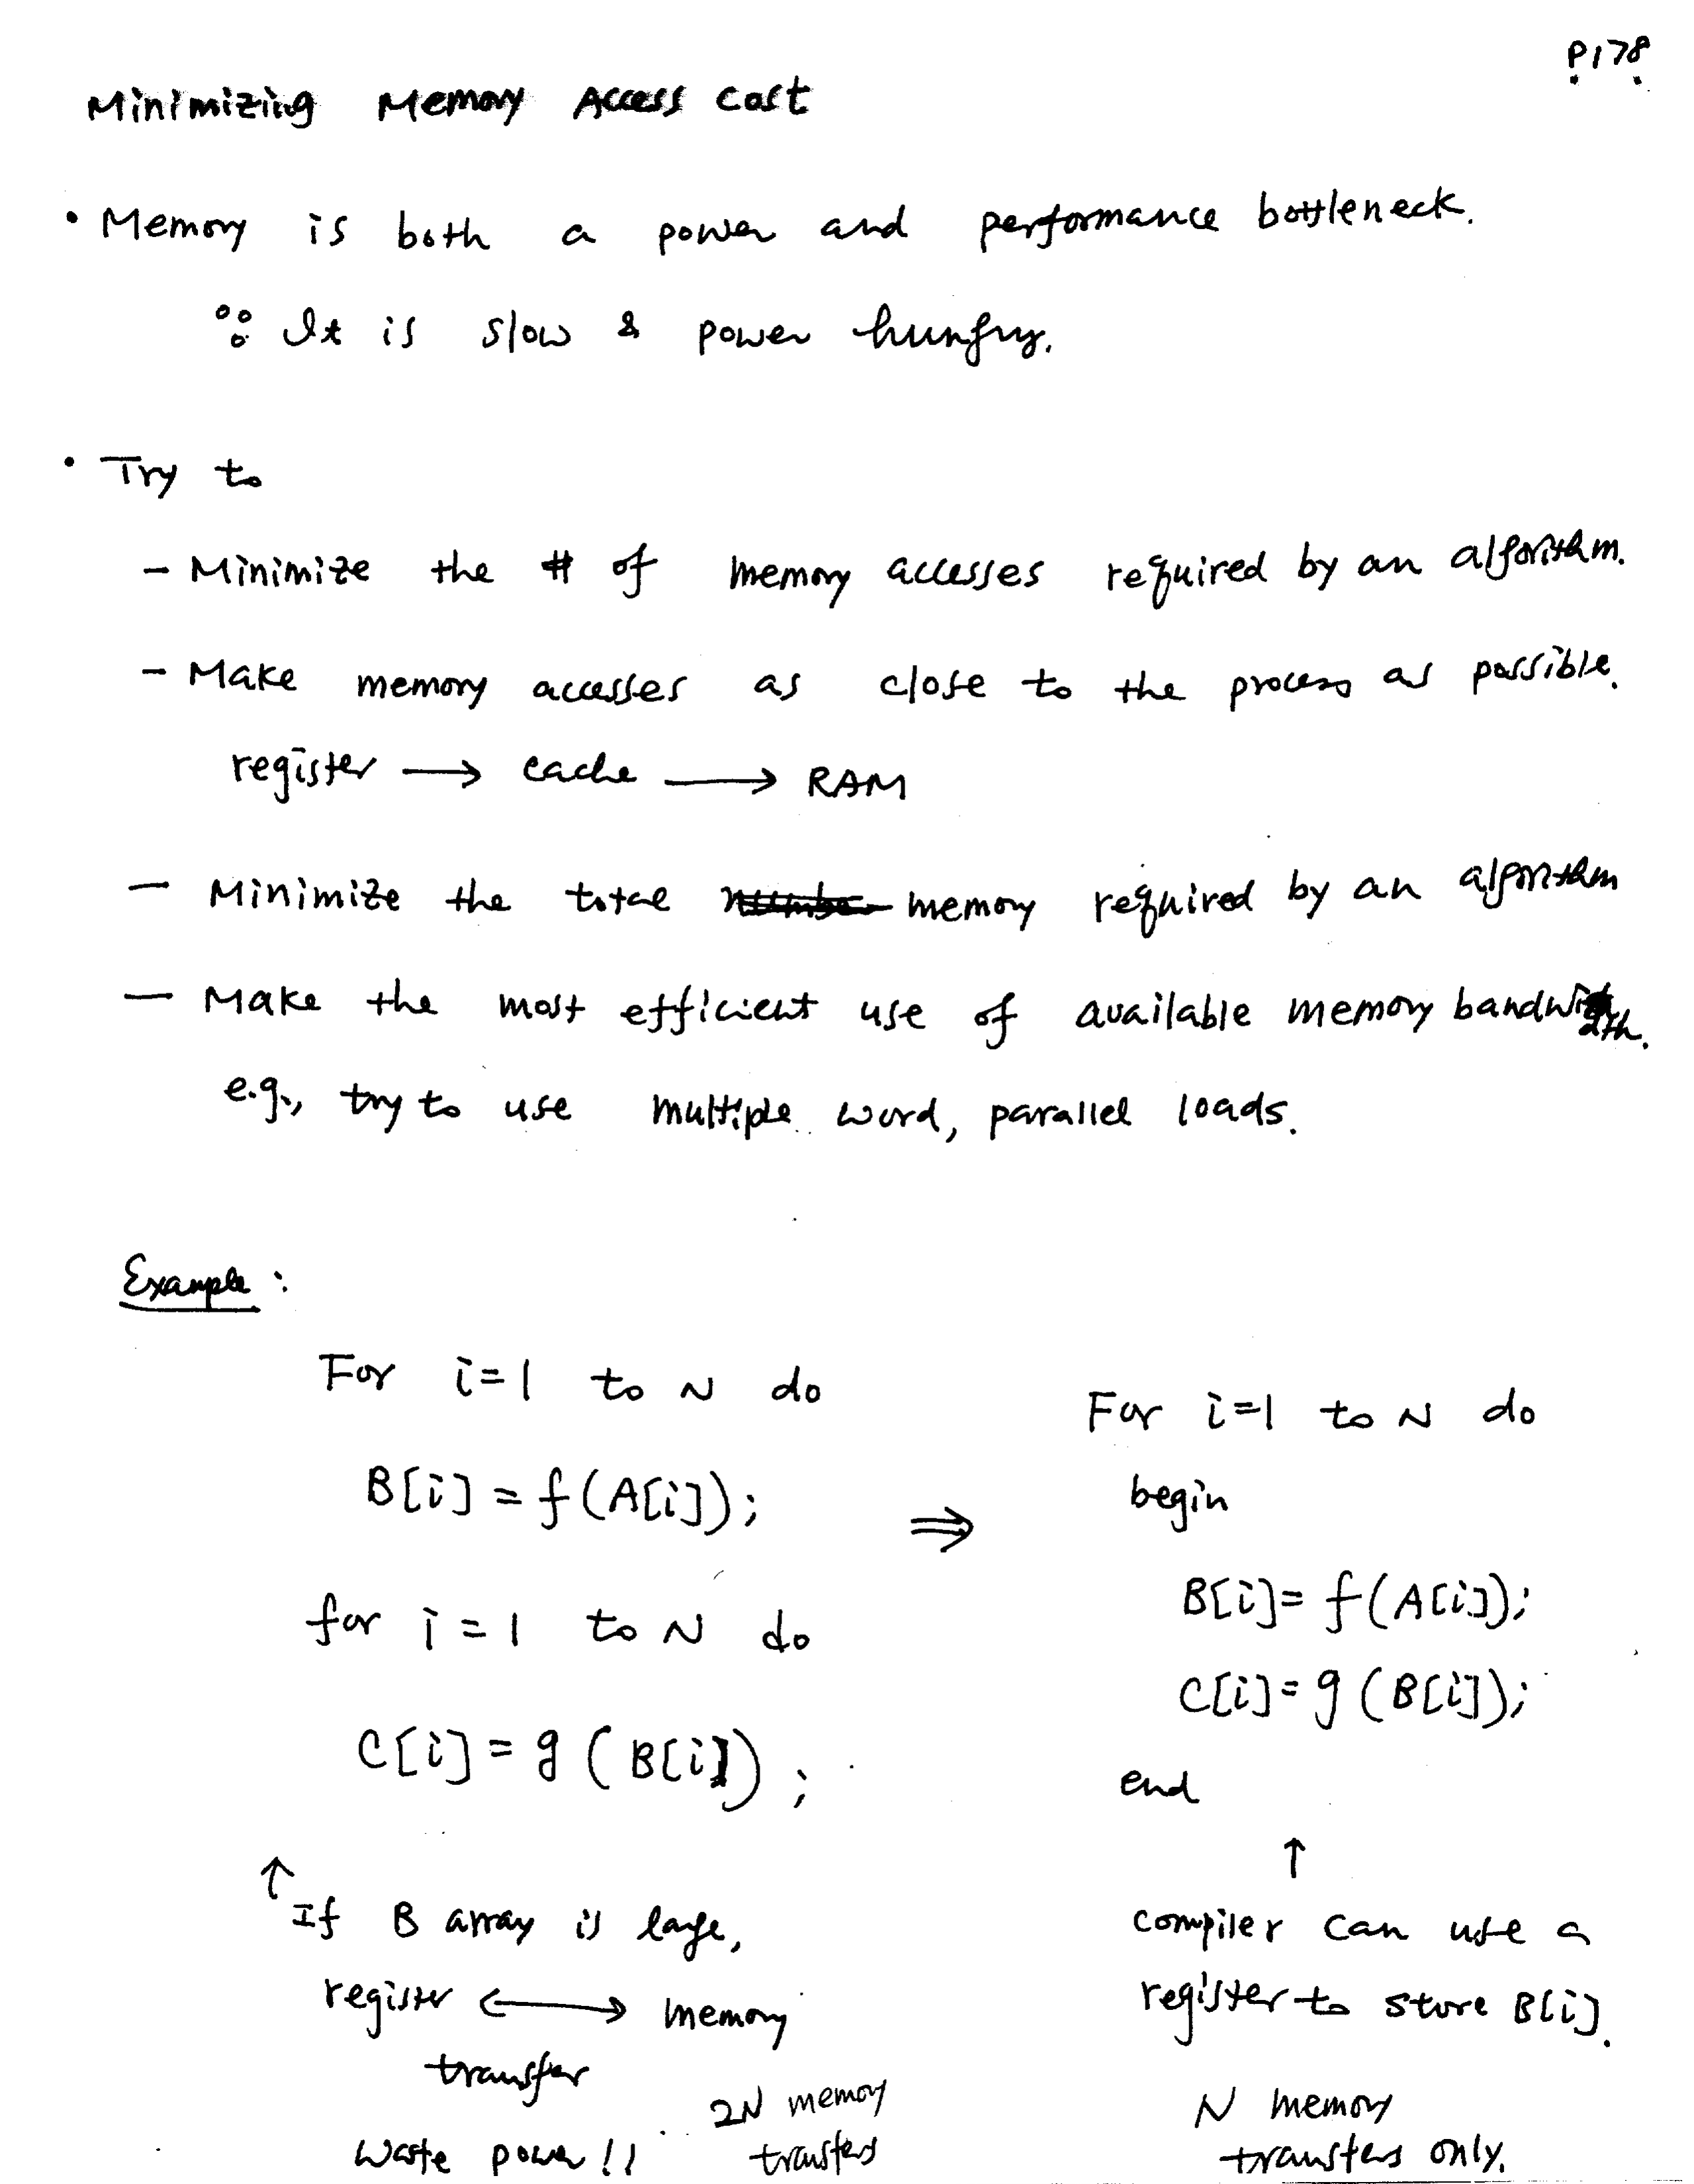 P.178.
Minimizing Memory Access Cost
• Memory is both a power and performance bottleneck.
∵ It is slow & power hungry.
• Try to
- Minimize the # of memory accesses required by an algorithm.
- Make memory accesses as close to the process as possible.
register → cache → RAM
- Minimize the total memory required by an algorithm
- Make the most efficient use of available memory bandwidth.
e.g., try to use multiple word, parallel loads.
Example:
For i=1 to N do
B[i] = f(A[i]);
for i=1 to N do
C[i] = g(B[i]);
↑ If B array is large,
register ↔ memory
transfer
waste power!!
2N memory
transfers
⇒
For i=1 to N do
begin
B[i] = f(A[i]);
C[i] = g(B[i]);
end
↑
compiler can use a
register to store B[i].
N memory
transfers only.